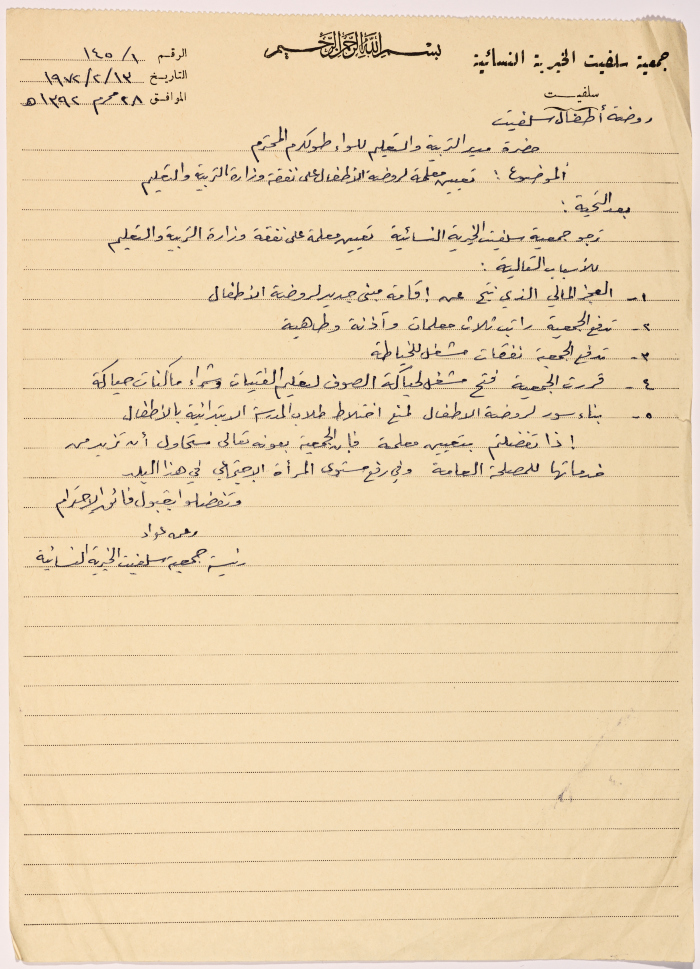 بسم الله الرحمن الرحيم
جمعية سلفيت الخيرية النسائية
سلفيت
الرقم ١٤٥/١
التاريخ ١٩٧٢/٢/١٣
الموافق ٢٨ محرم ١٣٩٢ه
روضة أطفال سلفيت
حضرة مدير التربية والتعليم للواء طولكرم المحترم
الموضوع : تعيين معلمة لروضة الأطفال على نفقة وزارة التربية والتعليم
بعد التحية :
ترجو جمعية سلفيت الخيرية النسائية تعيين معلمة على نفقة وزارة التربية والتعليم
للأسباب التالية :
١- العجز المالي الذي نتج عن إقامة مبنى جديد لروضة الأطفال
٢- تدفع الجمعية راتب ثلاث معلمات وآذنة وطاهية
٣- تدفع الجمعية نفقات مشغل للخياطة
٤- قررت الجمعية فتح مشغل لحياكة الصوف لتعليم الفتيات وشراء ماكنات حياكة
٥- بناء سور لروضة الاطفال لمنع اختلاط طلاب المدرسة الابتدائية بالأطفال
إذا تفضلتم بتعيين معلمة فإن الجمعية بعونه تعالى ستحاول أن تزيد من
خدماتها للمصلحة العامة وفي رفع مستوى المرأة الاجتماعي في هذا البلد
وتفضلوا بقبول فائق الإحترام
عواد
رئيسة جمعية سلفيت الخيرية النسائية